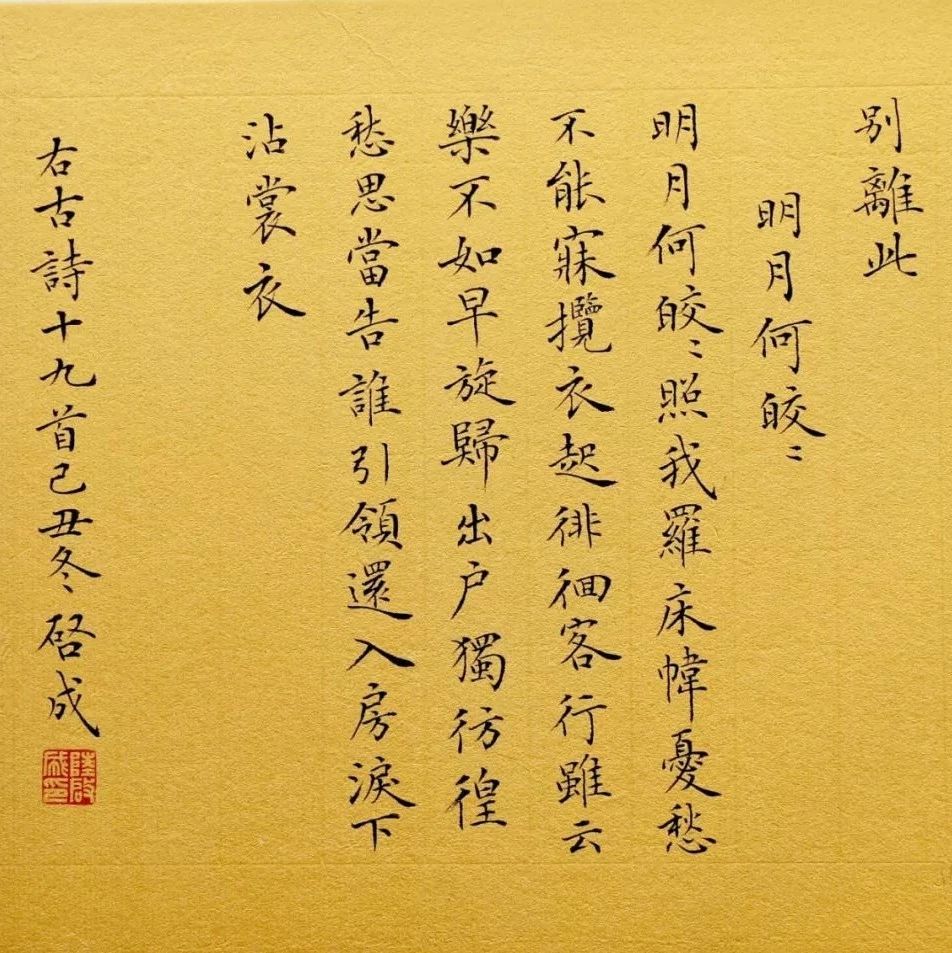 別離此
明月何皎〻
明月何皎〻照我羅床幃憂愁
不能寐攬衣起徘徊客行雖云
樂不如早旋歸出户獨彷徨
愁思當告誰引領還入房淚下
沾裳衣
右古詩十九首己丑冬〻啓成
陸啓成印